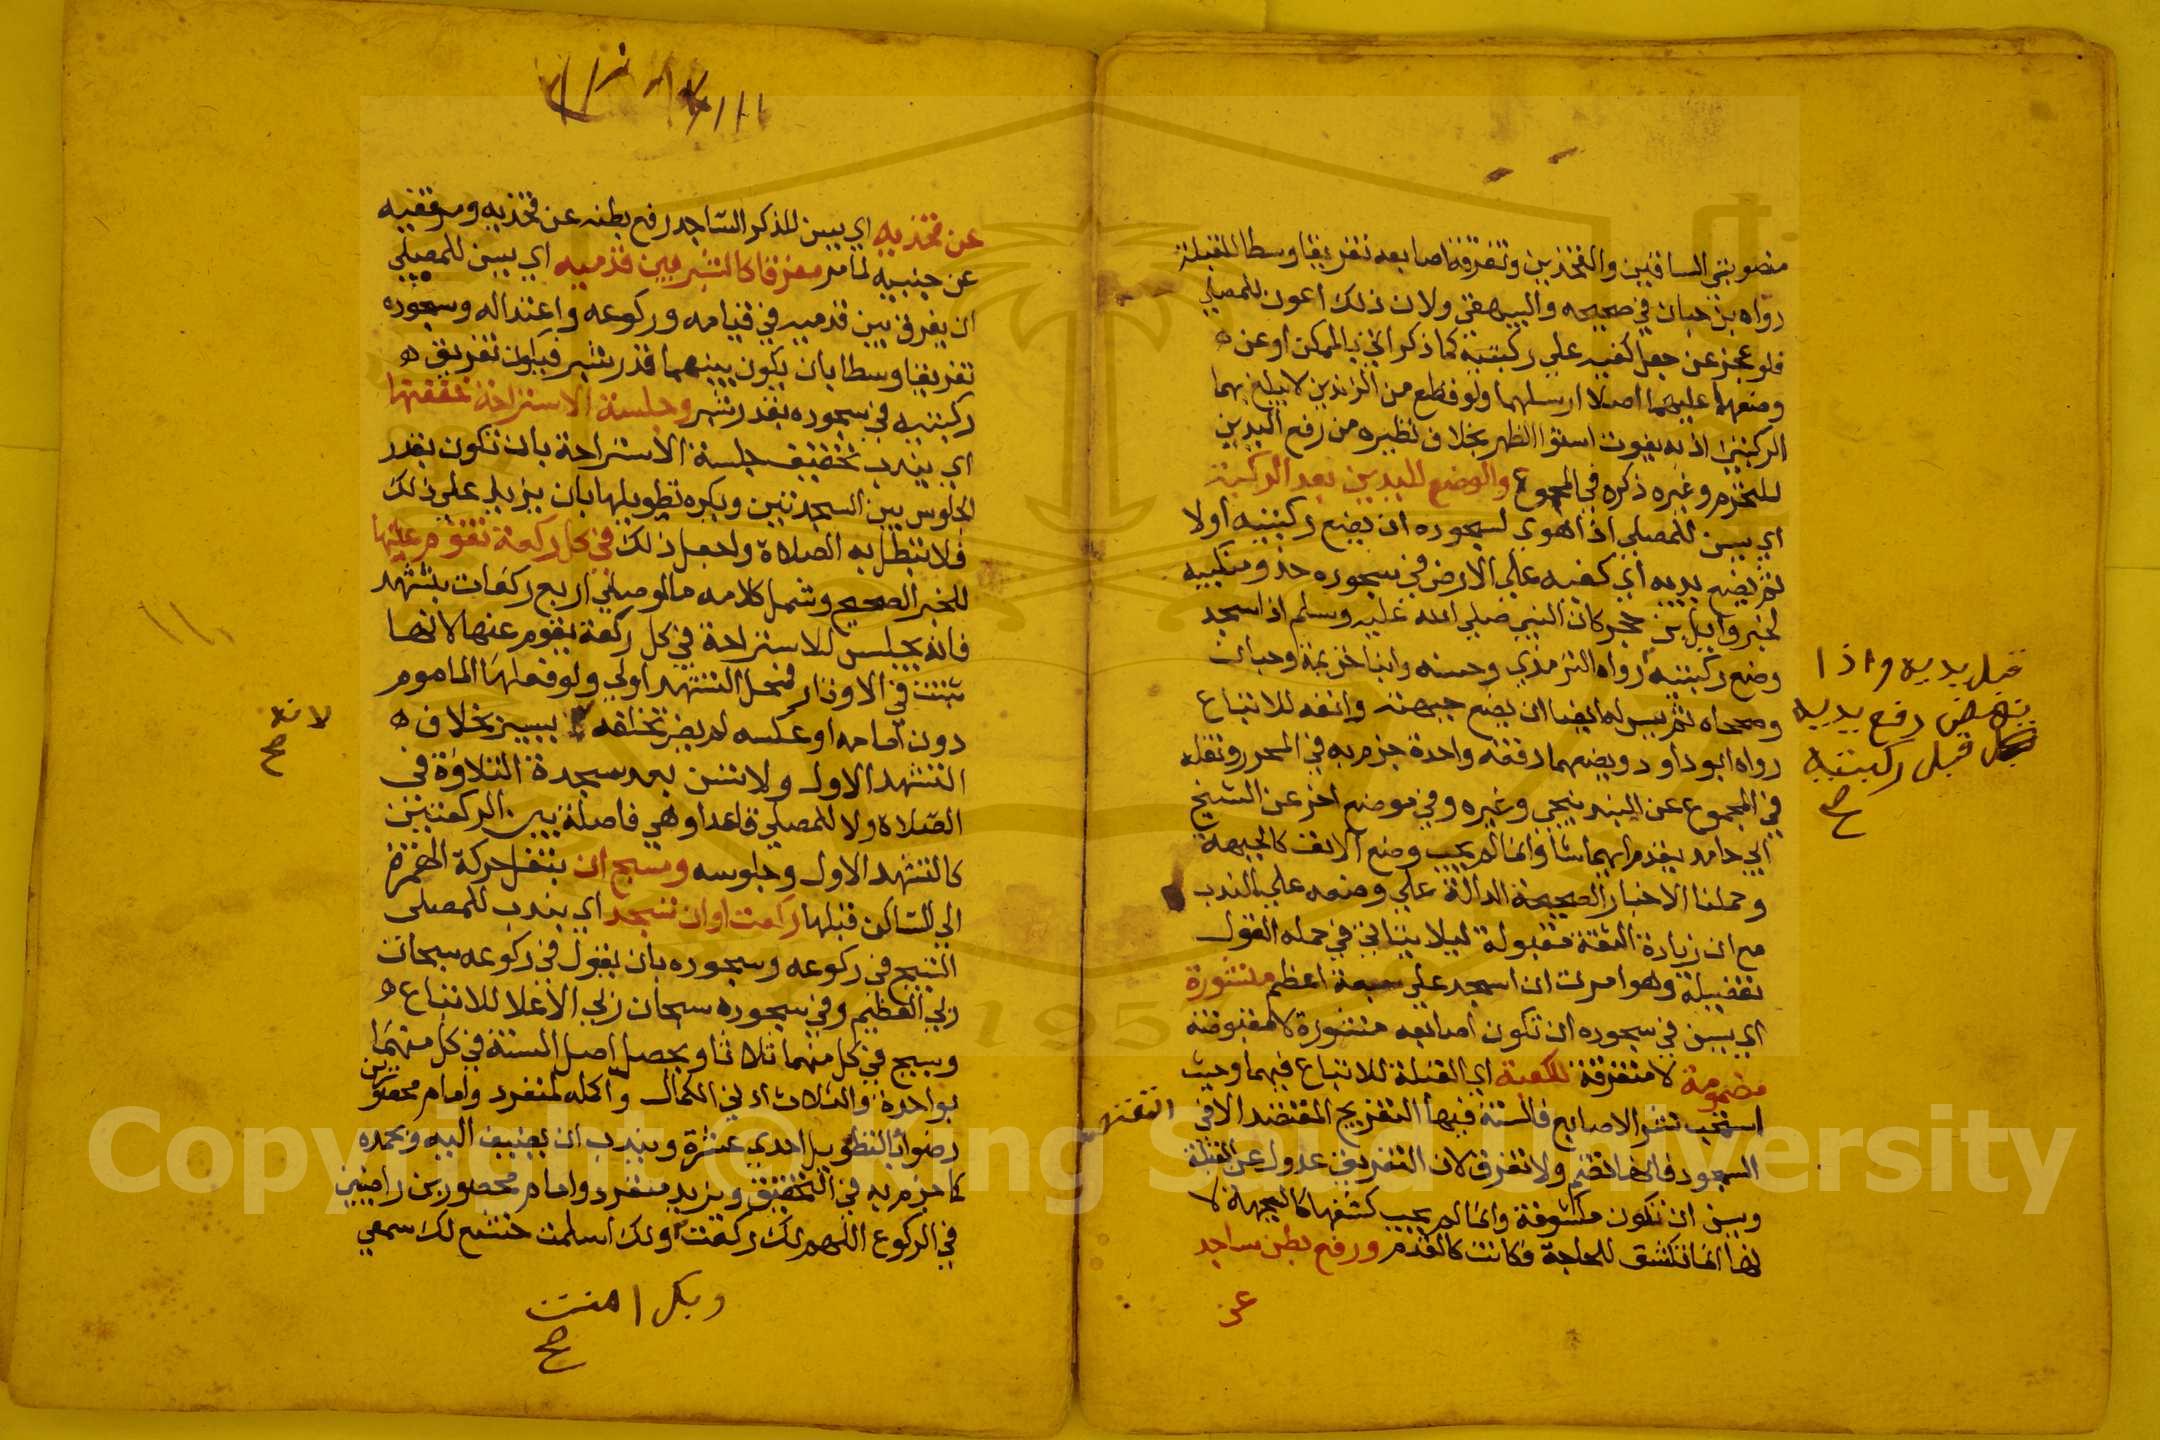 منصوبتي الساقين والفخذين وتفرقة اصابعه تفريقا وسطا للقبلة
رواه بن حبان في صحيحه والبيهقي ولان ذلك اعون للمصلي
فلو عجز عن جعل كفيه علي ركبتيه كما ذكر اتي بالممكن او عن
وضعهما عليهما اصلا ارسلهما ولو قطع من الزندين لا يبلغ بهما
الركبتين اذ به يفوت استوا الظهر بخلاف نظيره من رفع اليدين
للتحرم وغيره ذكره في المجموع والوضع لليدين بعد الركبة
اي يسن للمصلي اذا اهوي لسجوده ان يضع ركبتيه اولا
ثم يضع يديه اي كفيه علي الارض في سجوده حذو منكبيه
لخبر وايل بن حجر كان النبي صلي الله عليه وسلم اذا سجد
وضع ركبتيه رواه الترمذي وحسنه وابنا خزيمة وحبان
قبل يديه واذا
نهض رفع يديه
قبل ركبتيه
صح
وصححاه ثم يسن له ايضا ان يضع جبهته وانفه للاتباع
رواه ابو داود ويضعهما دفعة واحدة جزم به في المحرر ونقله
في المجموع عن البندنيجي وغيره وفي موضع اخر عن الشيخ
ابي حامد يقدم ايهما شا وانما لم يجب وضع الانف كالجبهة
وحملنا الاخبار الصحيحة الدالة علي وضعه علي الندب
مع ان زيادة الثقة مقبولة ليلا ينافي في جمله القول
تفضيلة وهو امرت ان اسجد علي سبعة اعظم منشورة
اي يسن في سجوده ان تكون اصابعه منشورة لا مقبوضة
مضمومة لا متفرقة للكعبة اي القبلة للاتباع فيهما وحيث
استحب نشر الاصابع فالسنة فيها التفريج المقتصد الا في
السجود فانها تضم ولا تفرق لان التفريق عدول عن القبلة
ويسن ان تكون مكشوفة وانما لم يجب كشفها كالجبهة لا
نها انما تكشف للحاجة فكانت كالقدم ورفع بطن ساجد
عن
عن فخذيه اي يسن للذكر الساجد رفع بطنه عن فخذيه ومرفقيه
عن جنبيه لما مر مفرقا كالشبر بين قدميه اي يسن للمصلي
ان يفرق بين قدميه في قيامه وركوعه واعتداله وسجوده
تفريقا وسطا بان يكون بينهما قدر شبر فيكون تفريق
ركبتيه في سجوده بقدر شبر وجلسة الاستراحة خففتها
اي يندب تخفيف جلسة الاستراحة بان تكون بقدر
الجلوس بين السجدتين ويكره تطويلها بان يزيد علي ذلك
فلا تبطل به الصلاة واجعل ذلك في كل ركعة تقوم عنها
للخبر الصحيح وشمل كلامه ما لو صلي اربع ركعات بتشهد
فانه يجلس للاستراحة في كل ركعة يقوم عنها لانها
تثبت في الاوتار فمحل التشهد اولي ولو فعلها الماموم
دون امامه او عكسه لم يضر تخلفه يسير بخلاف
لانه
صح
التشهد الاول ولا تسن بعد سجدة التلاوة في
الصلاة ولا للمصلي قاعدا وهي فاصلة بين الركعتين
كالتشهد الاول وجلوسه وسبح ان بنقل حركة الهمزة
الي الساكن قبلها ركعت او ان تسجد اي يندب للمصلي
التسبيح في ركوعه وسجوده بان يقول في ركوعه سبحان
ربي العظيم وفي سجوده سبحان ربي الاعلا للاتباع
ويسبح في كل منهما ثلاثا ويحصل اصل السنة في كل منهما
بواحدة والثلاث ادني الكمال واكمله لمنفرد وامام محصورين
رضوا بالتطويل احدي عشرة ويندب ان يضيف اليه وبحمده
كما جزم به في التحقيق ويزيد منفرد وامام محصورين راضين
في الركوع اللهم لك ركعت ولك اسلمت خشع لك سمعي
وبك امنت
صح
Copyright © King Saud University
1957